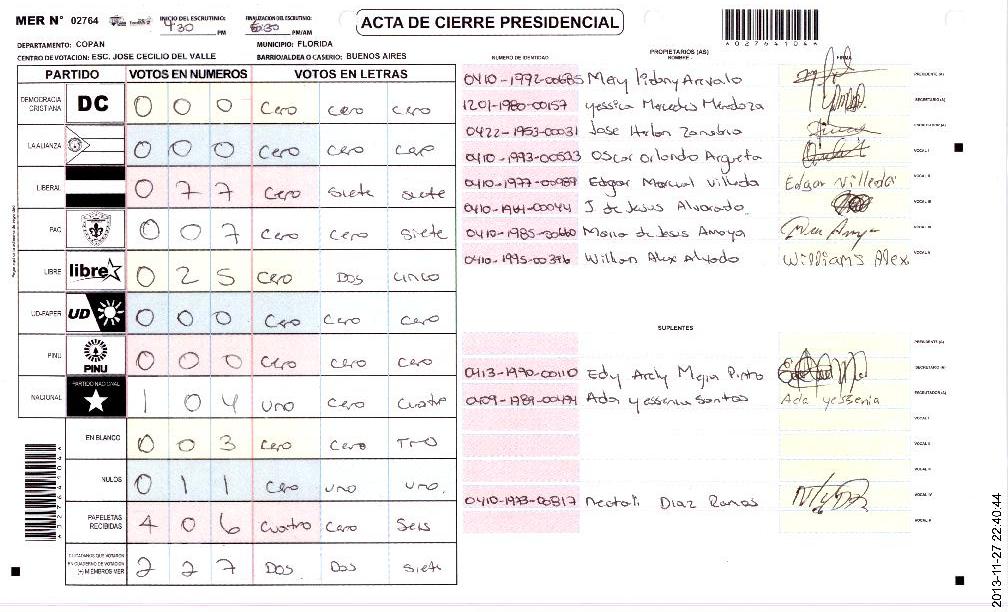 MER N° 02764
INICIO DEL ESCRUTINIO: 4:30 PM
FINALIZACION DEL ESCRUTINIO: 6:30 PM/AM
ACTA DE CIERRE PRESIDENCIAL
DEPARTAMENTO: COPAN
MUNICIPIO: FLORIDA
CENTRO DE VOTACION: ESC. JOSE CECILIO DEL VALLE
BARRIO/ALDEA O CASERIO: BUENOS AIRES
PARTIDO VOTOS EN NUMEROS VOTOS EN LETRAS
DEMOCRACIA CRISTIANA DC 0 0 0 Cero cero cero
LA ALIANZA 0 0 0 Cero cero cero
LIBERAL 0 7 7 Cero siete siete
PAC 0 0 7 Cero cero siete
LIBRE libre 0 2 5 Cero Dos cinco
UD-FAPER UD 0 0 0 Cero cero cero
PINU PINU 0 0 0 Cero cero cero
NACIONAL PARTIDO NACIONAL 1 0 4 uno cero cuatro
EN BLANCO 0 0 3 cero cero
NULOS 0 1 1 Cero uno uno.
PAPELETAS RECIBIDAS 4 0 6 cuatro cero Seis
CIUDADANOS QUE VOTARON EN CUADERNO DE VOTACION (+) MIEMBROS MER 2 2 7 Dos Dos siete
PROPIETARIOS (AS)
NUMERO DE IDENTIDAD NOMBRE FIRMA
0410-1992-00685 Arevalo PRESIDENTE (A)
1201-1980-00157 yessica Mercedes Mendoza SECRETARIO (A)
0422-1953-00031 Jose ESCRUTADOR (A)
0410-1993-00533 Oscar Orlando Argueta VOCAL I
Edgar Villeda Edgar Villeda VOCAL II
J. de Jesus Alvarado VOCAL III
Maria de Jesus Amaya
Alex Williams Alex
SUPLENTES
PRESIDENTE (A)
0413-1990-00110 Edy Mejia Pinto SECRETARIO (A)
Ada yessenia Santos Ada yessenia ESCRUTADOR (A)
VOCAL I
VOCAL II
VOCAL III
0410-1973-00817 Nectali Diaz Ramos VOCAL IV
VOCAL V
2013-11-27 22:40:44